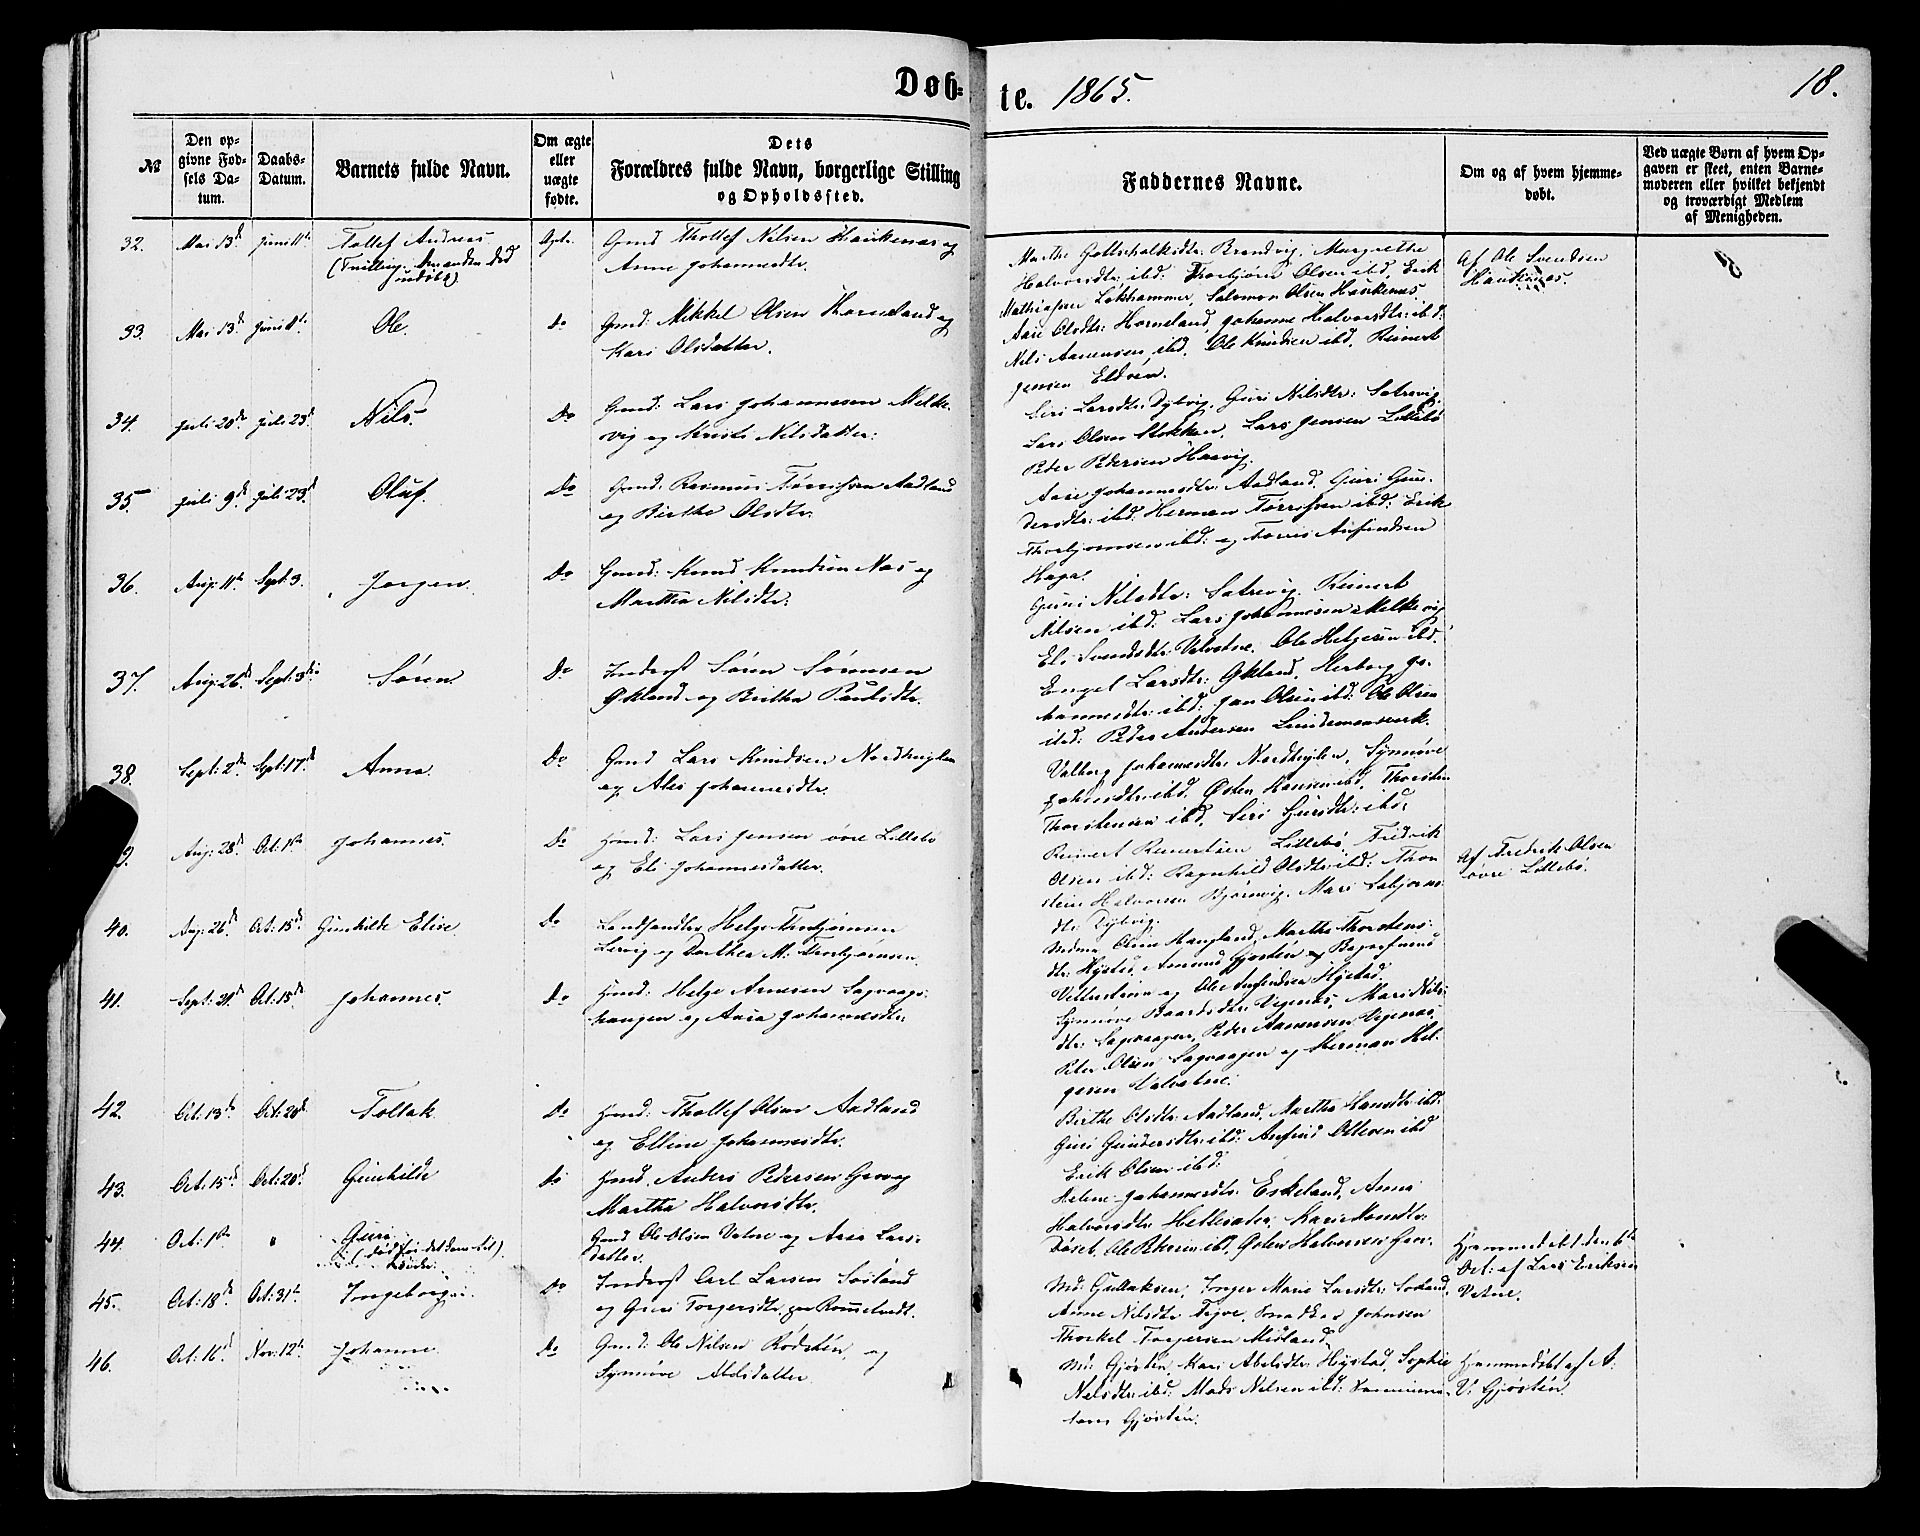 Døb=
te. 1865.
18.
№
Den op-
givne Fød-
sels Da-
tum.
Daabs-
Datum.
Barnets fulde Navn.
Om ægte
eller
uægte
fødte.
Dets
Forældres fulde Navn, borgerlige Stilling
og Opholdssted.
Faddernes Navne.
Om og af hvem hjemme-
døbt.
Ved uægte Børn af hvem Op-
gaven er skeet, enten Barne-
moderen eller hvilket bekjendt
og troværdigt Medlem
af Menigheden.
32. Mai 13d Juni 11te Tollef Andreas Ægte. Gmd Thollef Nilsen Haukenæs og
Anne Johannesdtr.
Marthe Gottschalksdtr. Brandvig, Margrethe
Halvorsdtr. ibd: Thorbjørn Olsen ibd, Erik
Mathiassen Løkhammer, Salomon Olsen Haukenæs
Af Ole Svendsen
Haukenæs.
33. Mai 13d Juni 11te Ole. Do Gmd: Mikkel Olsen Horneland og
Kari Olsdatter.
Aase Olsdtr: Horneland, Johanne Halvorsdtr: ibd.
Nils Aanensen ibd. Ole Knudsen ibd. Reinert
Jensen Eldøen.
34. Juli 20de Juli 23d Nils. Do Gmd: Lars Johannessen Melke-
vig og Kristi Nilsdatter.
Siri Larsdtr. Dybvig, Guri Nilsdtr: Satrevig,
Lars Olsen Stokken, Lars Jensen Lillebø
Peder Pedersen Haavig.
35. Juli 9d Juli 23d Oluf. Do Gmd: Rasmus Tørrissen Aadland
og Birthe Olsdtr.
Aase Johannesdtr: Aadland, Guri Gun-
dersdtr: ibd. Herman Tørrissen ibd: Erik
Thorbjørnsen ibd: og Tørris Anfindsen
Haga.
36. Aug: 11te Sept: 3. Jørgen. Do Gmd: Knud Knudsen Næs og
Martha Nilsdtr:
Guri Nilsdtr: Satrevig, Reinert
Nilsen ibd: Lars Johannesen Melkevig
Eli Svendsdtr: Valvatne. Ole Helgesen ibd.
37. Aug: 26de Sept: 3die Søren. Do Inderst Søren Sørensen
Økland og Britha Paulsdtr.
Engel Larsdtr: Økland, Herborg Jo-
hannesdtr: ibd: Jan Olsen ibd: Ole Olsen
ibd: Peder Andersen Lundemannsverk.
38. Sept: 2d Sept: 17d Anna. Do Gmd Lars Knudsen Nordhuglen
og Ales Johannesdtr.
Valborg Johannesdtr. Nordhuglen, Synnøve
Johansdtr: ibd. Østen Hansen ibd, Thorsten
Thorstensen ibd, Siri Sjursdtr: ibd.
9. Aug: 28d Oct: 1te Johannes. Do Hmd: Lars Jensen øvre Lillebø
og Eli Johannesdatter.
Reinert Reinertsen Lillebø, Fredrik
Olsen ibd: Ragnhild Olsdtr: ibd: Thor
stein Halvorsen Bjørnevig. Mari Asbjørns-
dtr. Dybvig.
Af Fredrik Olsen
øvre Lillebø.
40. Aug: 26d Oct: 15d Gunhilde Elise. Do Landhandler Helge Thorbjørnsen
Lervig og Dorthea M: Thorbjørnsen.
Mdme Olsen Haugland, Martha Thorstens-
dtr: Hystad, Amund Gjøstein og
og Ole Anfindsen Hystad.
41. Sept: 21d Oct: 15d Johannes. Do Hmd: Helge Arnesen Sagvaags-
haugen og Aasa Johannesdtr:
Synnøve Baardsdtr: Vigenæs, Mari Nils-
dtr: Sagvaagen, Peder Aanensen Vigenæs,
Peter Olsen Sagvaagen og Herman Hel-
gesen Valvatne.
42. Oct: 13d Oct: 20d Tollak Do Hmd: Thollef Olsen Aadland
og Elline Johannesdtr.
Birthe Olsdtr: Aadland, Martha Hansdtr ibd:
Guri Gundersdtr: ibd: Anfind Ottesen ibd
Erik Olsen ibd:
43. Oct: 15d Oct: 20d Gunhilde Do Hmd. Anders Pedersen Grov og
Martha Halvorsdtr.
Helene Johannesdtr: Eskeland, Anna
Halvorsdtr: Hellesæter, Kari
44. Oct: 1te " Guri Gmd Ole Olsen Vatne og Aasa Lars-
datter.
Hjemmedøbt den 6te
Oct: af Lars Eriksen
Vatne.
45. Oct: 18d Oct: 31te Ingeborg Do Inderst Carl Larsen Soeland
og Guri Torgersdtr.
Inger Marie Larsdtr: Soeland,
Anne Nilsdtr
Thorkel Torgersen Midland
46. Oct: 16d Nov: 12te Johanne Do Gmd: Ole Nilsen Rødstén, og
Synnøve Abelsdatter
Md: Gjøsten, Kari Abelsdtr: Hystad, Sophie
Nelsdtr: ibd: Mads Nilsen ibd:
Gjøsten:
Hjemmedøbt af A:
V: Gjøstén.